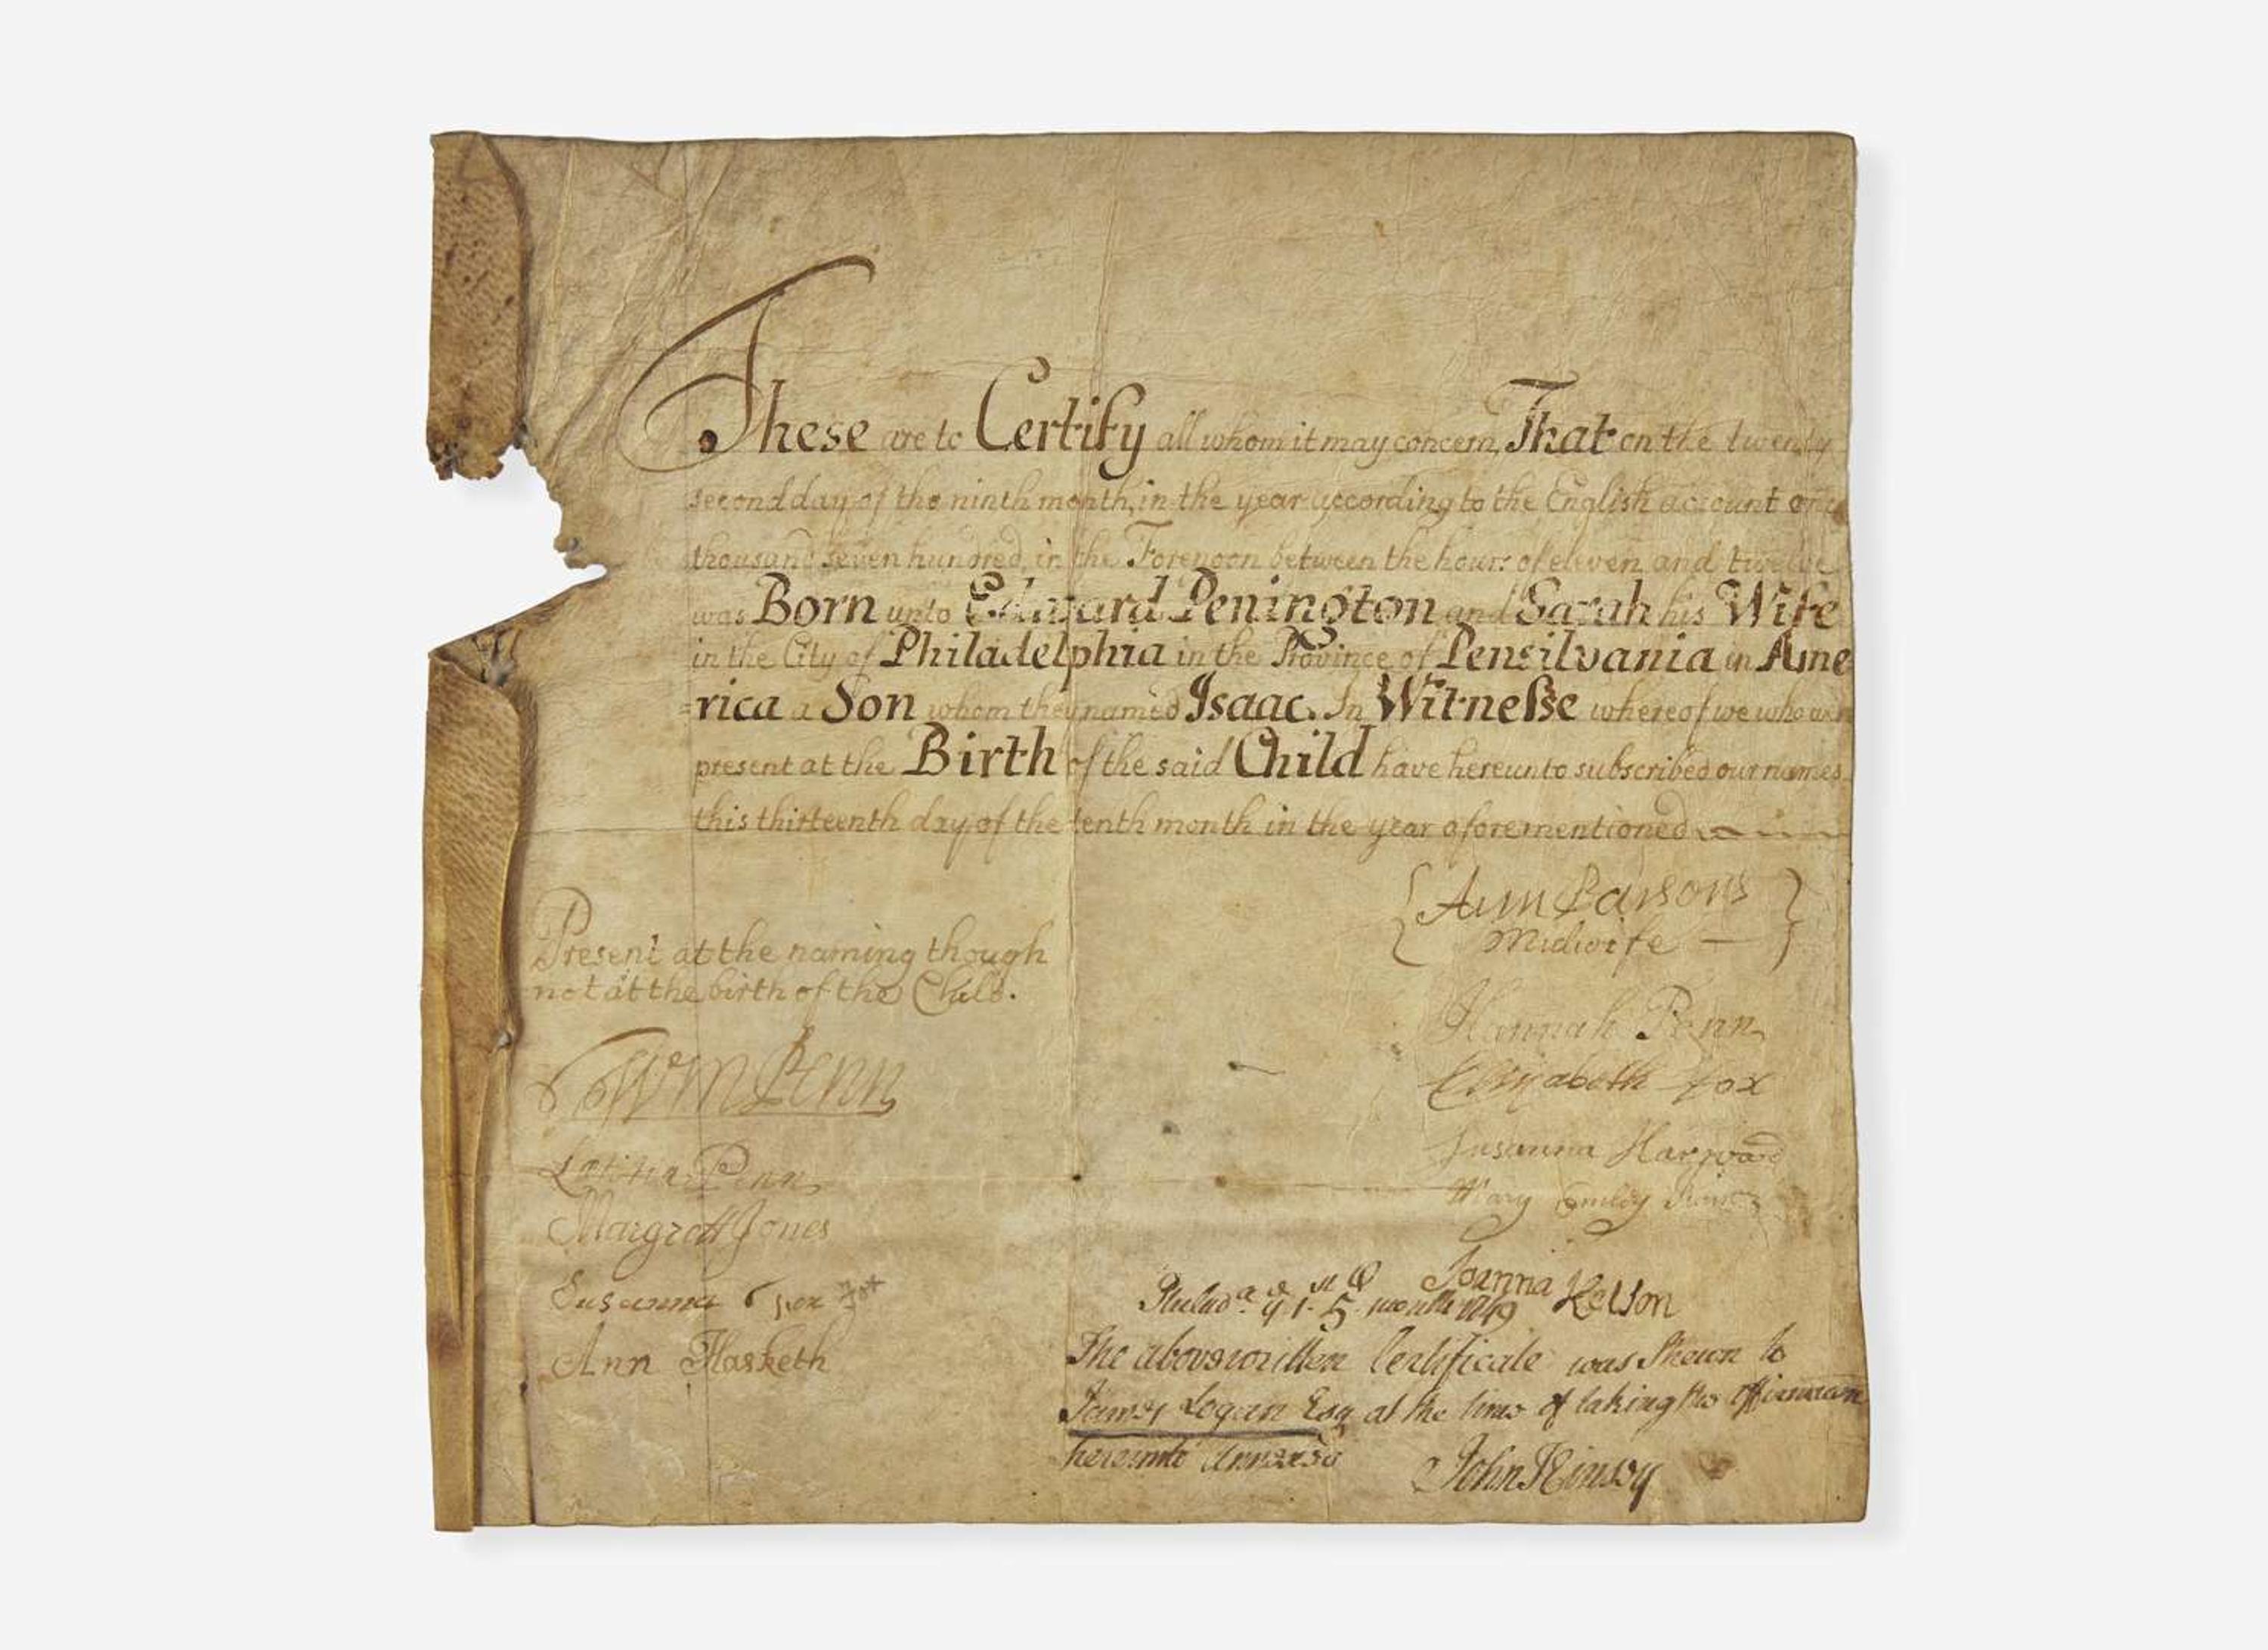 These are to Certify all whom it may concern, That on the twenty
second day of the ninth month, in the year according to the English account one
thousand seven hundred, in the Forenoon between the hours of eleven and twelve
was Born unto Edward Penington and Sarah his Wife
in the City of Philadelphia in the Province of Pensilvania in Ame
rica a Son whom they named Isaac. In Witnesse whereof we who were
present at the Birth of the said Child have hereunto subscribed our names
this thirteenth day of the tenth month in the year aforementioned
Ann Parsons
Midwife
Present at the naming though
not at the birth of the Child.
Hannah Penn
Wm Penn
Elizabeth Fox
Susanna Harwood
Letitia Penn
Mary
Margrett Jones
Joanna
Susanna Fox
Philada ye 1st 5 month 1749
Ann Hasketh
The abovewritten Certificate was Shewn to
James Logan Esq at the time of taking the Affirmation
hereunto Annexed
John Kinsey